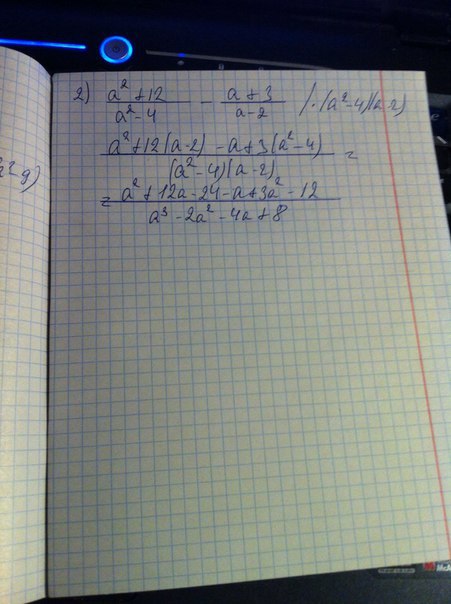 2) (a² + 12)/(a² - 4) - (a + 3)/(a - 2) /·(a²-4)(a-2)
(a² + 12(a-2) - a + 3(a² - 4))/((a² - 4)(a - 2)) =
= (a² + 12a - 24 - a + 3a² - 12)/(a³ - 2a² - 4a + 8)